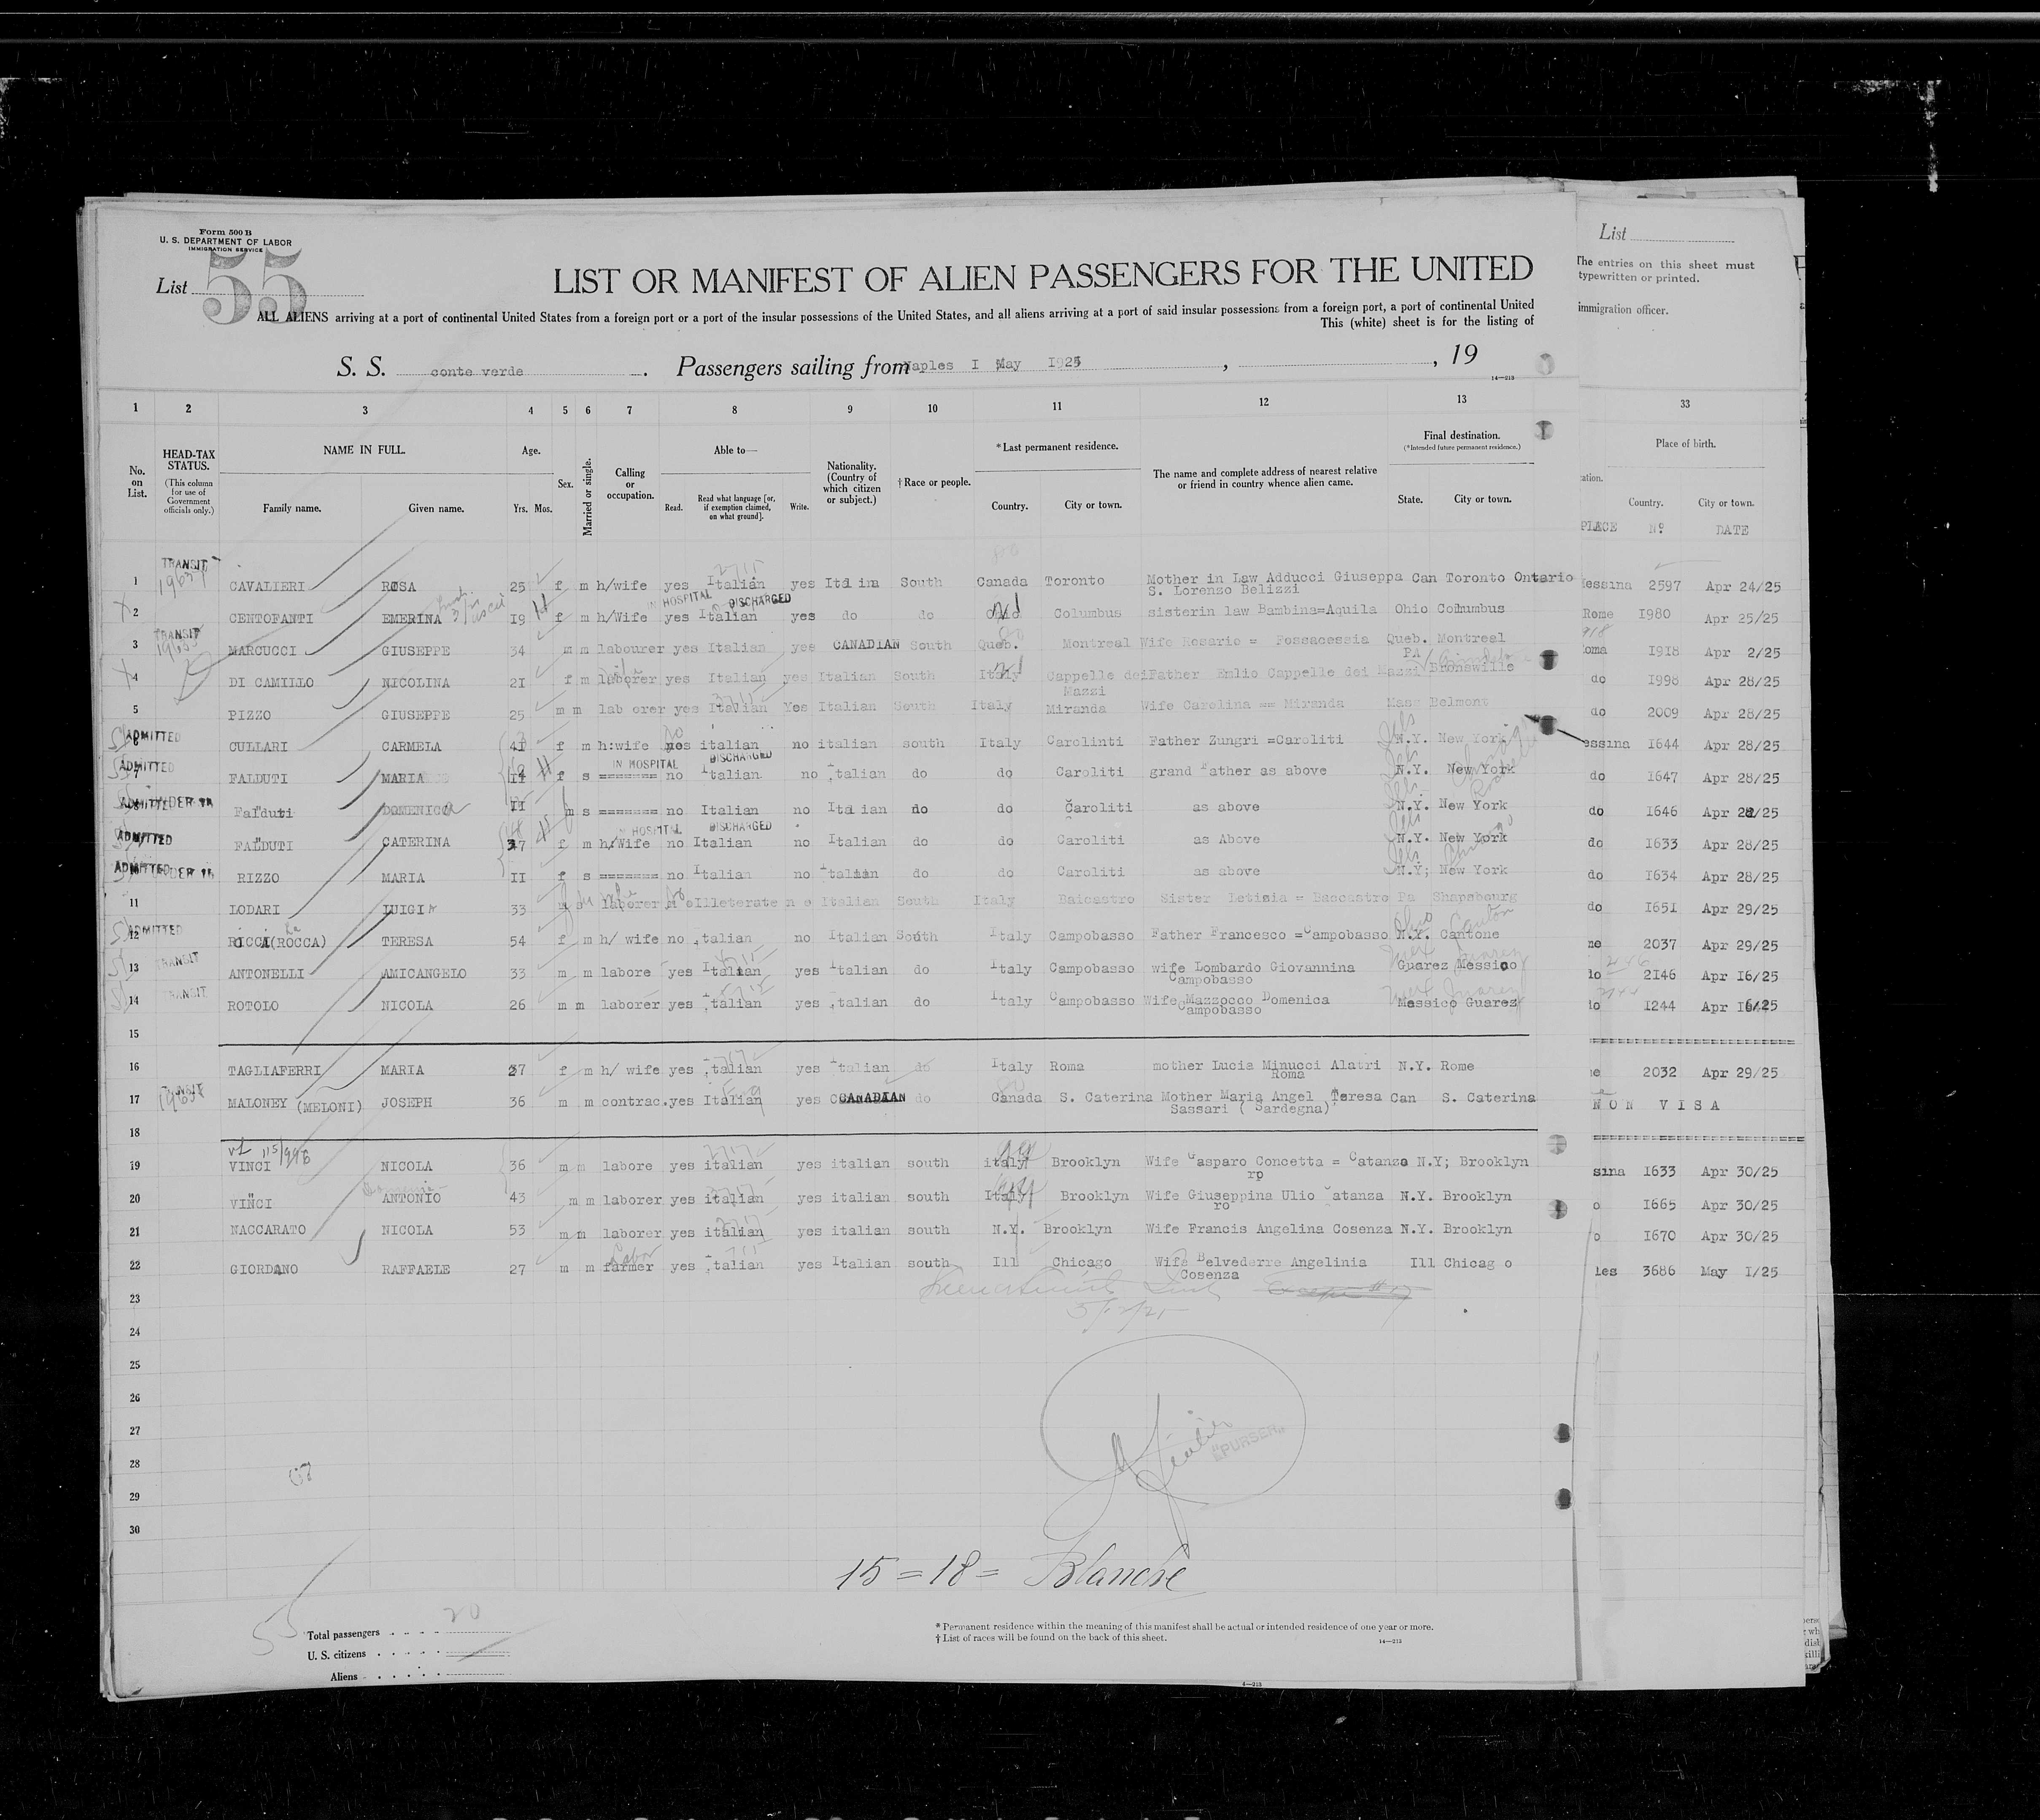 Form 500 B
U. S. DEPARTMENT OF LABOR
IMMIGRATION SERVICE
List 55
LIST OR MANIFEST OF ALIEN PASSENGERS FOR THE UNITED
ALL ALIENS arriving at a port of continental United States from a foreign port or a port of the insular possessions of the United States, and all aliens arriving at a port of said insular possessions from a foreign port, a port of continental United
This (white) sheet is for the listing of
S. S. conte verde. Passengers sailing from Naples I May 1925, , 19
14—213
List
The entries on this sheet must
typewritten or printed.
immigration officer.
1 2 3 4 5 6 7 8 9 10 11 12 13 33
No. on List.
HEAD-TAX STATUS.
(This column for use of Government officials only.)
NAME IN FULL.
Family name. Given name.
Age.
Yrs. Mos.
Sex.
Married or single.
Calling or occupation.
Able to—
Read. Read what language [or, if exemption claimed, on what ground]. Write.
Nationality. (Country of which citizen or subject.)
† Race or people.
* Last permanent residence.
Country. City or town.
The name and complete address of nearest relative or friend in country whence alien came.
Final destination.
(*Intended future permanent residence.)
State. City or town.
Place of birth.
Country. City or town.
PLACE Nº DATE
1 TRANSIT CAVALIERI ROSA 25 f m h/wife yes Italian yes South Canada Toronto Mother in Law Adducci Giuseppa Can Toronto Ontario essina 2597 Apr 24/25
S. Lorenzo Belizzi
IN HOSPITAL DISCHARGED
2 CENTOFANTI EMERINA 19 f m h/Wife yes Italian yes do do Columbus sisterin law Bambina=Aquila Ohio Columbus Rome 1980 Apr 25/25
3 TRANSIT MARCUCCI GIUSEPPE 34 m m labourer yes Italian yes CANADIAN South Queb. Montreal Wife Rosario = Fossacessia Queb. Montreal oma 1918 Apr 2/25
PA
4 DI CAMILLO NICOLINA 21 f m laborer yes Italian yes Italian South Italy Cappelle dei Mazzi Father Emlio Cappelle dei Mazzi do 1998 Apr 28/25
5 PIZZO GIUSEPPE 25 m m lab orer yes Italian Yes Italian South Italy Miranda Wife Carolina == Miranda Mass Belmont do 2009 Apr 28/25
6 ADMITTED CULLARI CARMELA 41 f m h:wife no italian no italian south Italy Carolinti Father Zungri =Caroliti N.Y. New York essina 1644 Apr 28/25
IN HOSPITAL DISCHARGED
7 ADMITTED FALDUTI MARIA f s ======= no Italian no Italian do do Caroliti grand father as above N.Y. New York do 1647 Apr 28/25
8 Falduti DOMENICA s ======= no Italian no Italian do do Caroliti as above N.Y. New York do 1646 Apr 28/25
IN HOSPITAL DISCHARGED
9 ADMITTED FALDUTI CATERINA 37 f m h/Wife no Italian no Italian do do Caroliti as Above N.Y. New York do 1633 Apr 28/25
10 ADMITTED RIZZO MARIA II f s ======= no Italian no Italian do do Caroliti as above N.Y; New York do 1634 Apr 28/25
11 LODARI LUIGIA 33 laborer Illeterate Italian South Italy Baicastro Sister Letizia = Bascastro Pa Shapsbourg do 1651 Apr 29/25
12 ADMITTED RICCI (ROCCA) TERESA 54 f m h/ wife no Italian no Italian South Italy Campobasso Father Francesco =Campobasso N.Y. Cantone 2037 Apr 29/25
13 TRANSIT ANTONELLI AMICANGELO 33 m m labore yes Italian yes Italian do Italy Campobasso wife Lombardo Giovannina Guarez Messico do 2146 Apr 16/25
Campobasso
14 TRANSIT ROTOLO NICOLA 26 m m laborer yes Italian yes Italian do Italy Campobasso Wife Mazzocco Domenica Messico Guarez do 1244 Apr 16/25
Campobasso
15
16 TAGLIAFERRI MARIA 37 f m h/ wife yes Italian yes Italian do Italy Roma mother Lucia Minucci Alatri N.Y. Rome 2032 Apr 29/25
Roma
17 TRANSIT MALONEY (MELONI) JOSEPH 36 m m contrac. yes Italian yes CANADIAN do Canada S. Caterina Mother Maria Angel Teresa Can S. Caterina NON VISA
Sassari ( Sardegna)
18
19 VINCI NICOLA 36 m m labore yes italian yes italian south italy Brooklyn Wife Gasparo Concetta = Catanza N.Y; Brooklyn sina 1633 Apr 30/25
ro
20 VINCI ANTONIO 43 m m laborer yes italian yes italian south Italy Brooklyn Wife Giuseppina Ulio Catanza N.Y. Brooklyn o 1665 Apr 30/25
ro
21 NACCARATO NICOLA 53 m m laborer yes italian yes italian south N.Y. Brooklyn Wife Francis Angelina Cosenza N.Y. Brooklyn o 1670 Apr 30/25
22 GIORDANO RAFFAELE 27 m m farmer yes Italian yes Italian south Ill Chicago Wife Belvederre Angelinia Ill Chicag o les 3686 May 1/25
Cosenza
23
24
25
26
27
28
29
30
PURSER
15 = 18 = Blanche
55
Total passengers 20
U. S. citizens
Aliens
* Permanent residence within the meaning of this manifest shall be actual or intended residence of one year or more.
† List of races will be found on the back of this sheet.
14—213